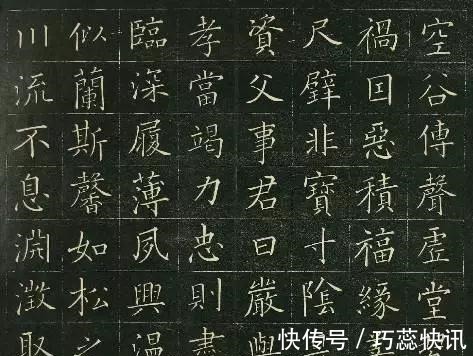 空谷傳聲虛堂
禍囙惡積福緣
尺璧非寶寸陰
資父事君曰嚴與
孝當竭力忠則盡
臨深履薄夙興溫
似蘭斯馨如松之
川流不息淵澂取
快传号 / 巧蕊快讯